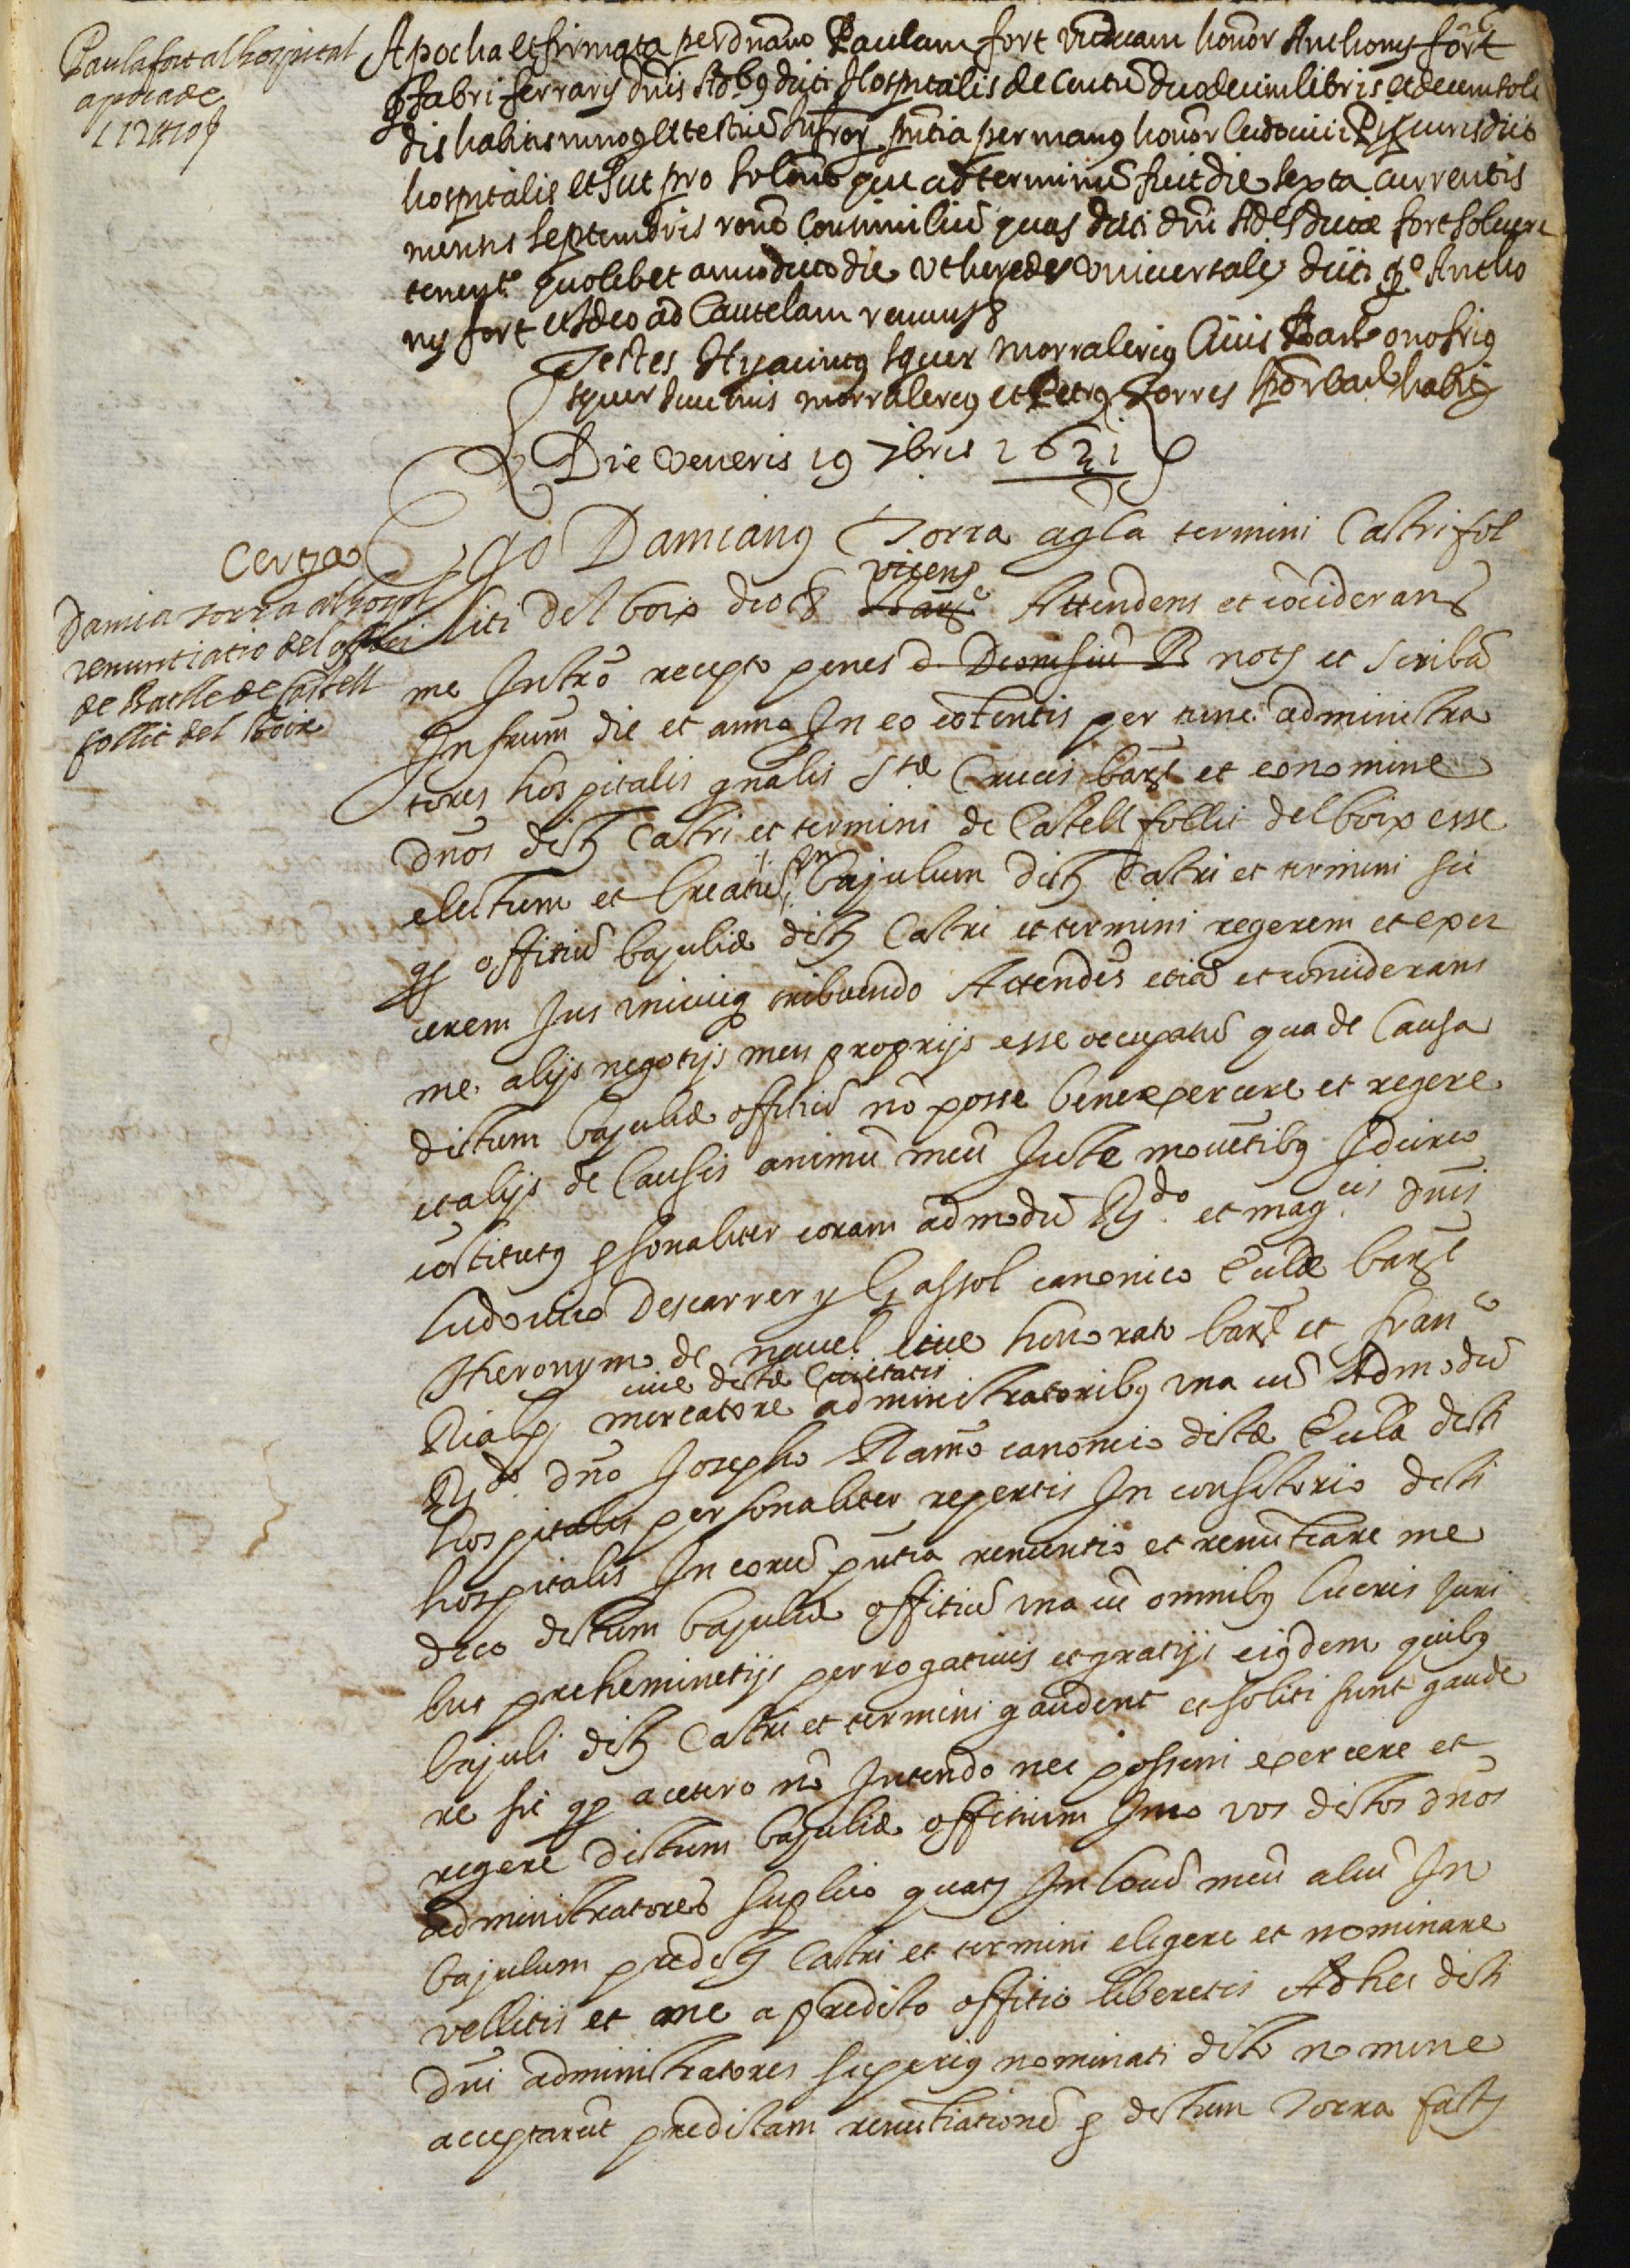 Paula fort al hospital
apocha de
112 ₶ 10 s
Apocha et firmata per dnam Paulam fort viduam honor Anthonij fort
q fabri ferrarij dnis Adbus dicti Hospitalis de centu duodecim libris et decem soli
dis habitis in nogt et testiu infror pntia per manus honor Ludovici dicti
hospitalis et sut pro solone que ad terminu fuit die sexta currentis
mensis septembris rone consimiliu quas dicti dni Ades dictæ fort solvere
tenentr quolibet anno dicto die ut heredes universale dicti qo Antho
nij fort et Ideo ad Cautelam renuns
Testes Hyacintus squer morralerius Civis Bar onofrius
squer Iuvenis morralerius et Petrus Torres bar habit
Die veneris 19 7bris 1621
Cerga
Damia Torra al hospl
renuntiatio del offici
de Batlle de Castell
follit del Boix
Ego Damianus Torra agla termini Castrifol
liti del boix dioc vicens Barc Attendens et cociderans
me Intro recepto penes d Dionisiu R noty et scriba
Infrum die et anno In eo cotentis per tunc administra
tores hospitalis gnalis Stæ Crucis barc et eo nomine
dnos dicti Castri et termini de Castellfollit del boix esse
electum et Creatu In bajulum dicti Castri et termini sic
qp offitiu bajuliæ dicti Castri et termini regerem et exer
cerem Jus unicuiq tribuendo Attendes etia et considerans
me alijs negotijs meis proprijs esse occupatu qua de Causa
dictum bajuliæ offitiu no posse bene exercere et regere
et alijs de Causis animu meu Juste movetibus Idcirco
costitutus psonaliter coram admodu Rdo et magcis dnis
Ludovico Descarrer y Gassol canonico Ecclæ barc
Hieronymo de navel cive honorato barc et Franco
Rialp mercatore cive dictæ Civitatis administratoribus una cu Admodu
Rdo dno Josepho Ramo canonico dictæ Eccla dicti
hospitalis personaliter repertis In consistorio dicti
hospitalis In eoru pntia renuntio et renutiare me
dico dictum bajuliæ offitiu una cu omnibus lucris Juri
bus preheminetijs perrogativis et gratijs eisdem quibus
bajuli dicti Castri et termini gaudent et soliti sunt gaude
re sic qp a cetero no Intendo nec possum exercere et
regere dictum bajuliæ offitium Imo vos dictos dnos
administratores suplico quats In locu meu aliu In
bajulum predicti Castri et termini eligere et nominare
vellitis et me a predicto offitio liberetis Ad hec dicti
dni administratores superius nominati dicto nomine
acceptarut predictam renutiatione p dictum Torra fact